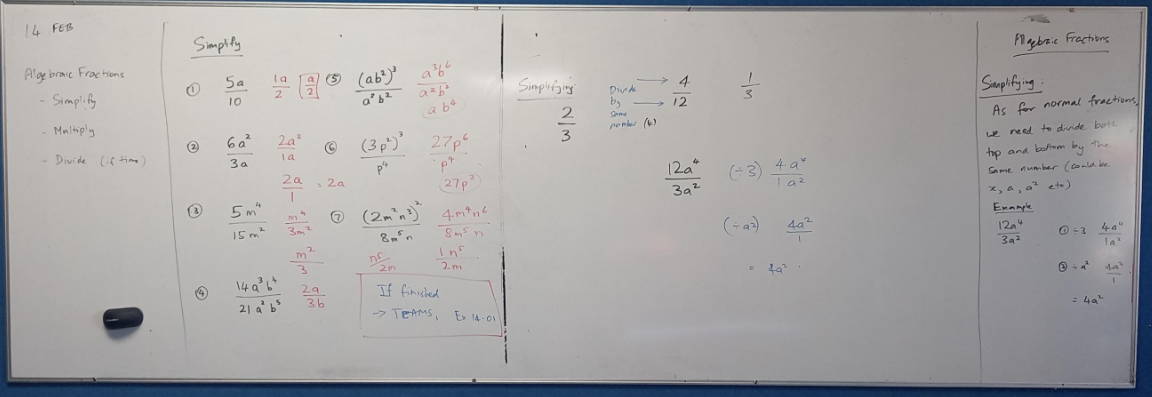 14 FEB
Algebraic Fractions
- Simplify
- Multiply
- Divide (if time)
Simplify
① 5a/10 1a/2 a/2
② 6a²/3a 2a²/1a
2a/1 = 2a
③ 5m⁴/15m² m⁴/3m²
m²/3
④ 14a³b⁴/21a²b⁵ 2a/3b
⑤ (ab²)³/a²b² a³b⁶/a²b²
ab⁴
⑥ (3p²)³/p⁴ 27p⁶/p⁴
27p²
⑦ (2m²n³)²/8m⁵n 4m⁴n⁶/8m⁵n
n⁵/2m 1n⁵/2m
If finished
→ TEAMS, Ex 14.01
Simplifying:
2/3
Divide
by
same
number (4)
4/12 1/3
12a⁴/3a² (÷3) 4a⁴/1a²
(÷a²) 4a²/1
= 4a²
Algebraic Fractions
Simplifying:
As for normal fractions,
we need to divide both
top and bottom by the
same number (could be
x, a, a² etc)
Example
12a⁴/3a² ① ÷3 4a⁴/1a²
② ÷a² 4a²/1
= 4a²